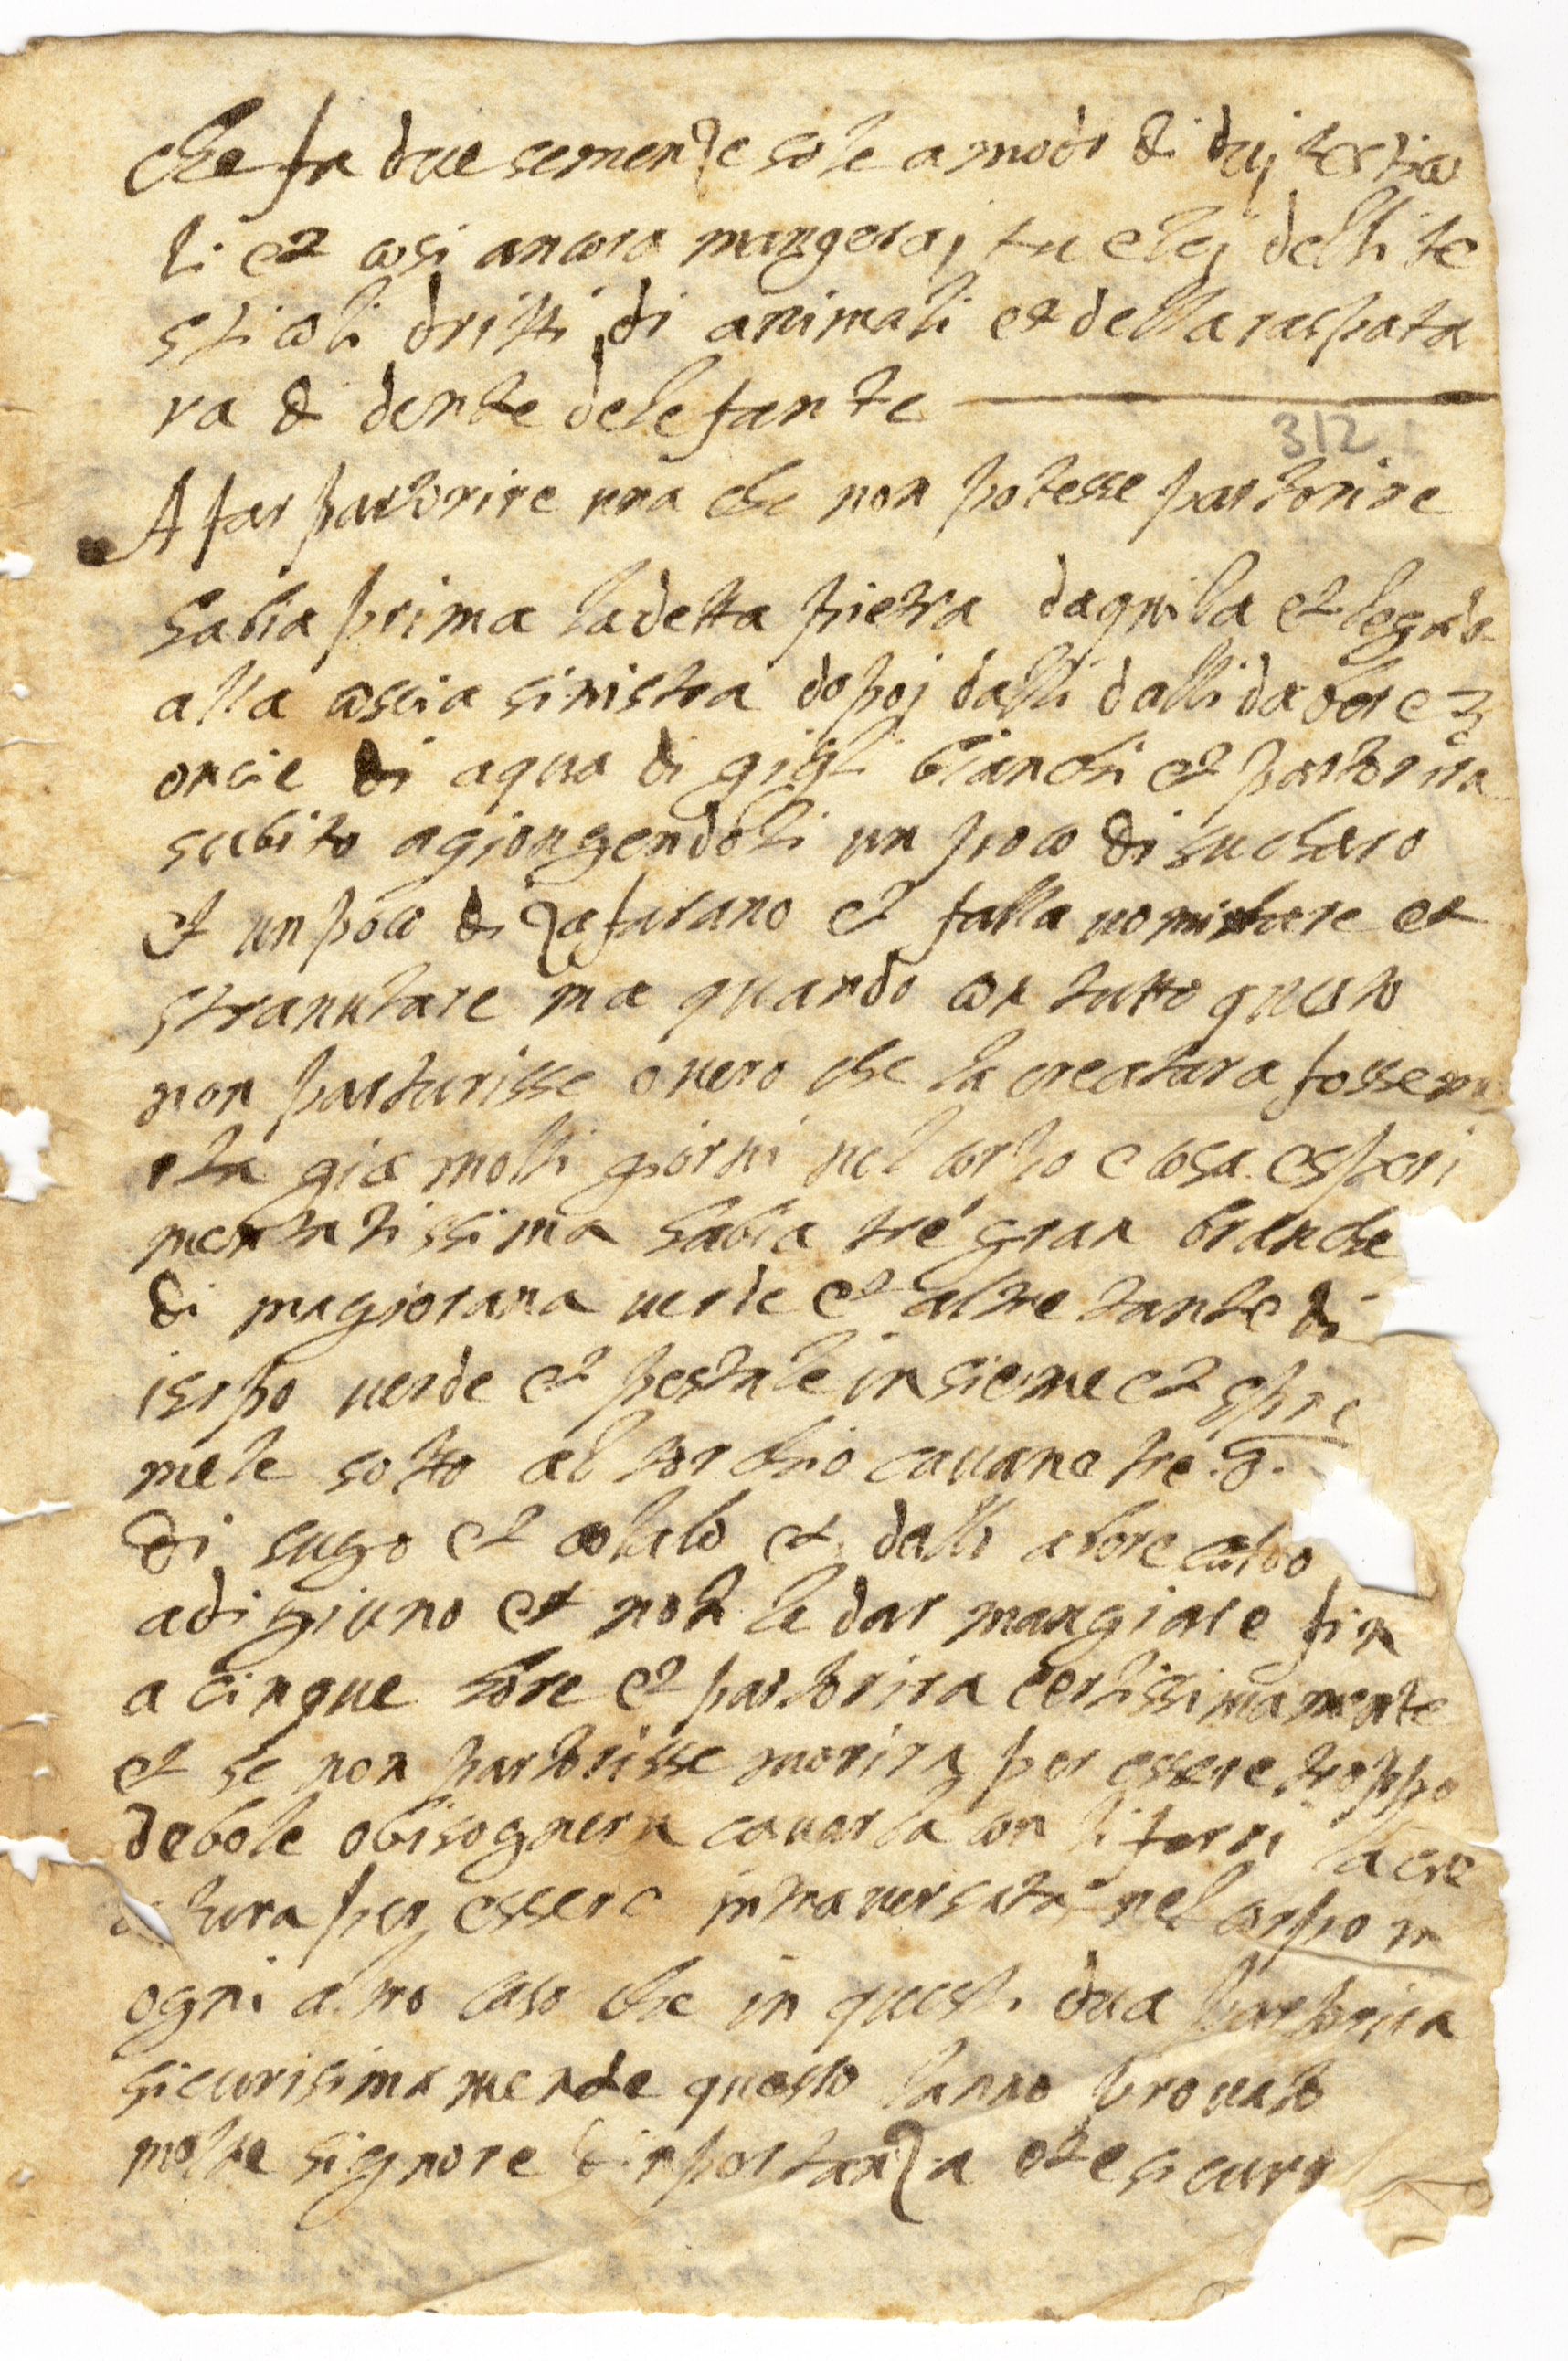 che fa due semenze sole a modo di duj testico
li et cosi ancora mangeraj tu e lej delli te
sticoli dritti di animali et della raspatu
ra di dente delefante
312
A far partorire una che non potesse partorire
habia prima la detta pietra daquila et legado
alla coscia sinistra dopoj dalli dalli da bere 3
oncie di aqua di gigli bianchi et partorira
subito agiongendoli un poco di sucharo
et un poco di zafarano et falla vomitare et
stranutare ma quando con tutto questo
non parturisse overo che la creatura fosse mo
rta gia molti giorni nel corpo e cosa esperi
mentatissima habia tré gran branche
di magiorana verde et altre tante di
isopo verde et pestale insieme et spre
mele sotto al torchio cavane tre
di sugo et colalo et dalli a bere caldo
a digiuno et non le dar mangiare fin
a cinque hore et partorira certissimamente
et se non partorisse morira per essere troppo
debole o bisognera cavarla con li ferri la cre
atura per essere intraversata nel corpo in
ogni altro caso che in questi dua partorira
sicurisimamende questo lanno provato
molte signore dinportanza et e sicuro